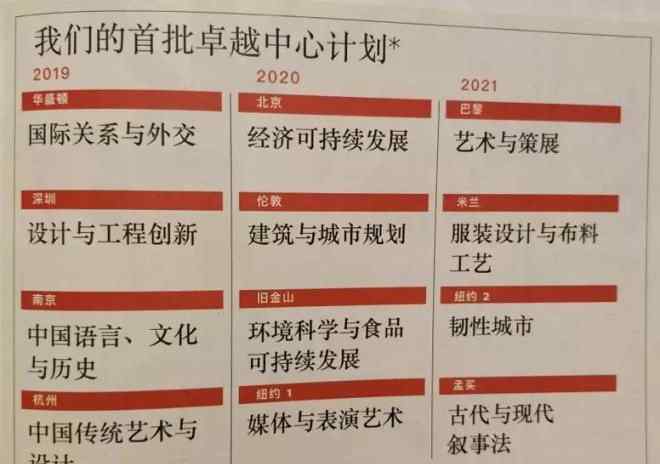 我们的首批卓越中心计划*
2019
华盛顿
国际关系与外交
深圳
设计与工程创新
南京
中国语言、文化
与历史
杭州
中国传统艺术与
设计
2020
北京
经济可持续发展
伦敦
建筑与城市规划
旧金山
环境科学与食品
可持续发展
纽约 1
媒体与表演艺术
2021
巴黎
艺术与策展
米兰
服装设计与布料
工艺
纽约 2
韧性城市
孟买
古代与现代
叙事法